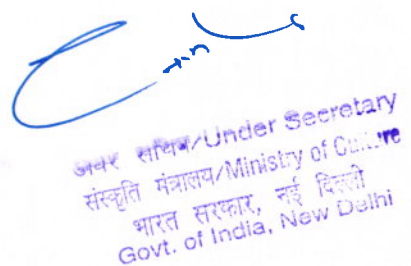 अवर सचिव/Under Secretary
संस्कृति मंत्रालय/Ministry of Culture
भारत सरकार, नई दिल्ली
Govt. of India, New Delhi